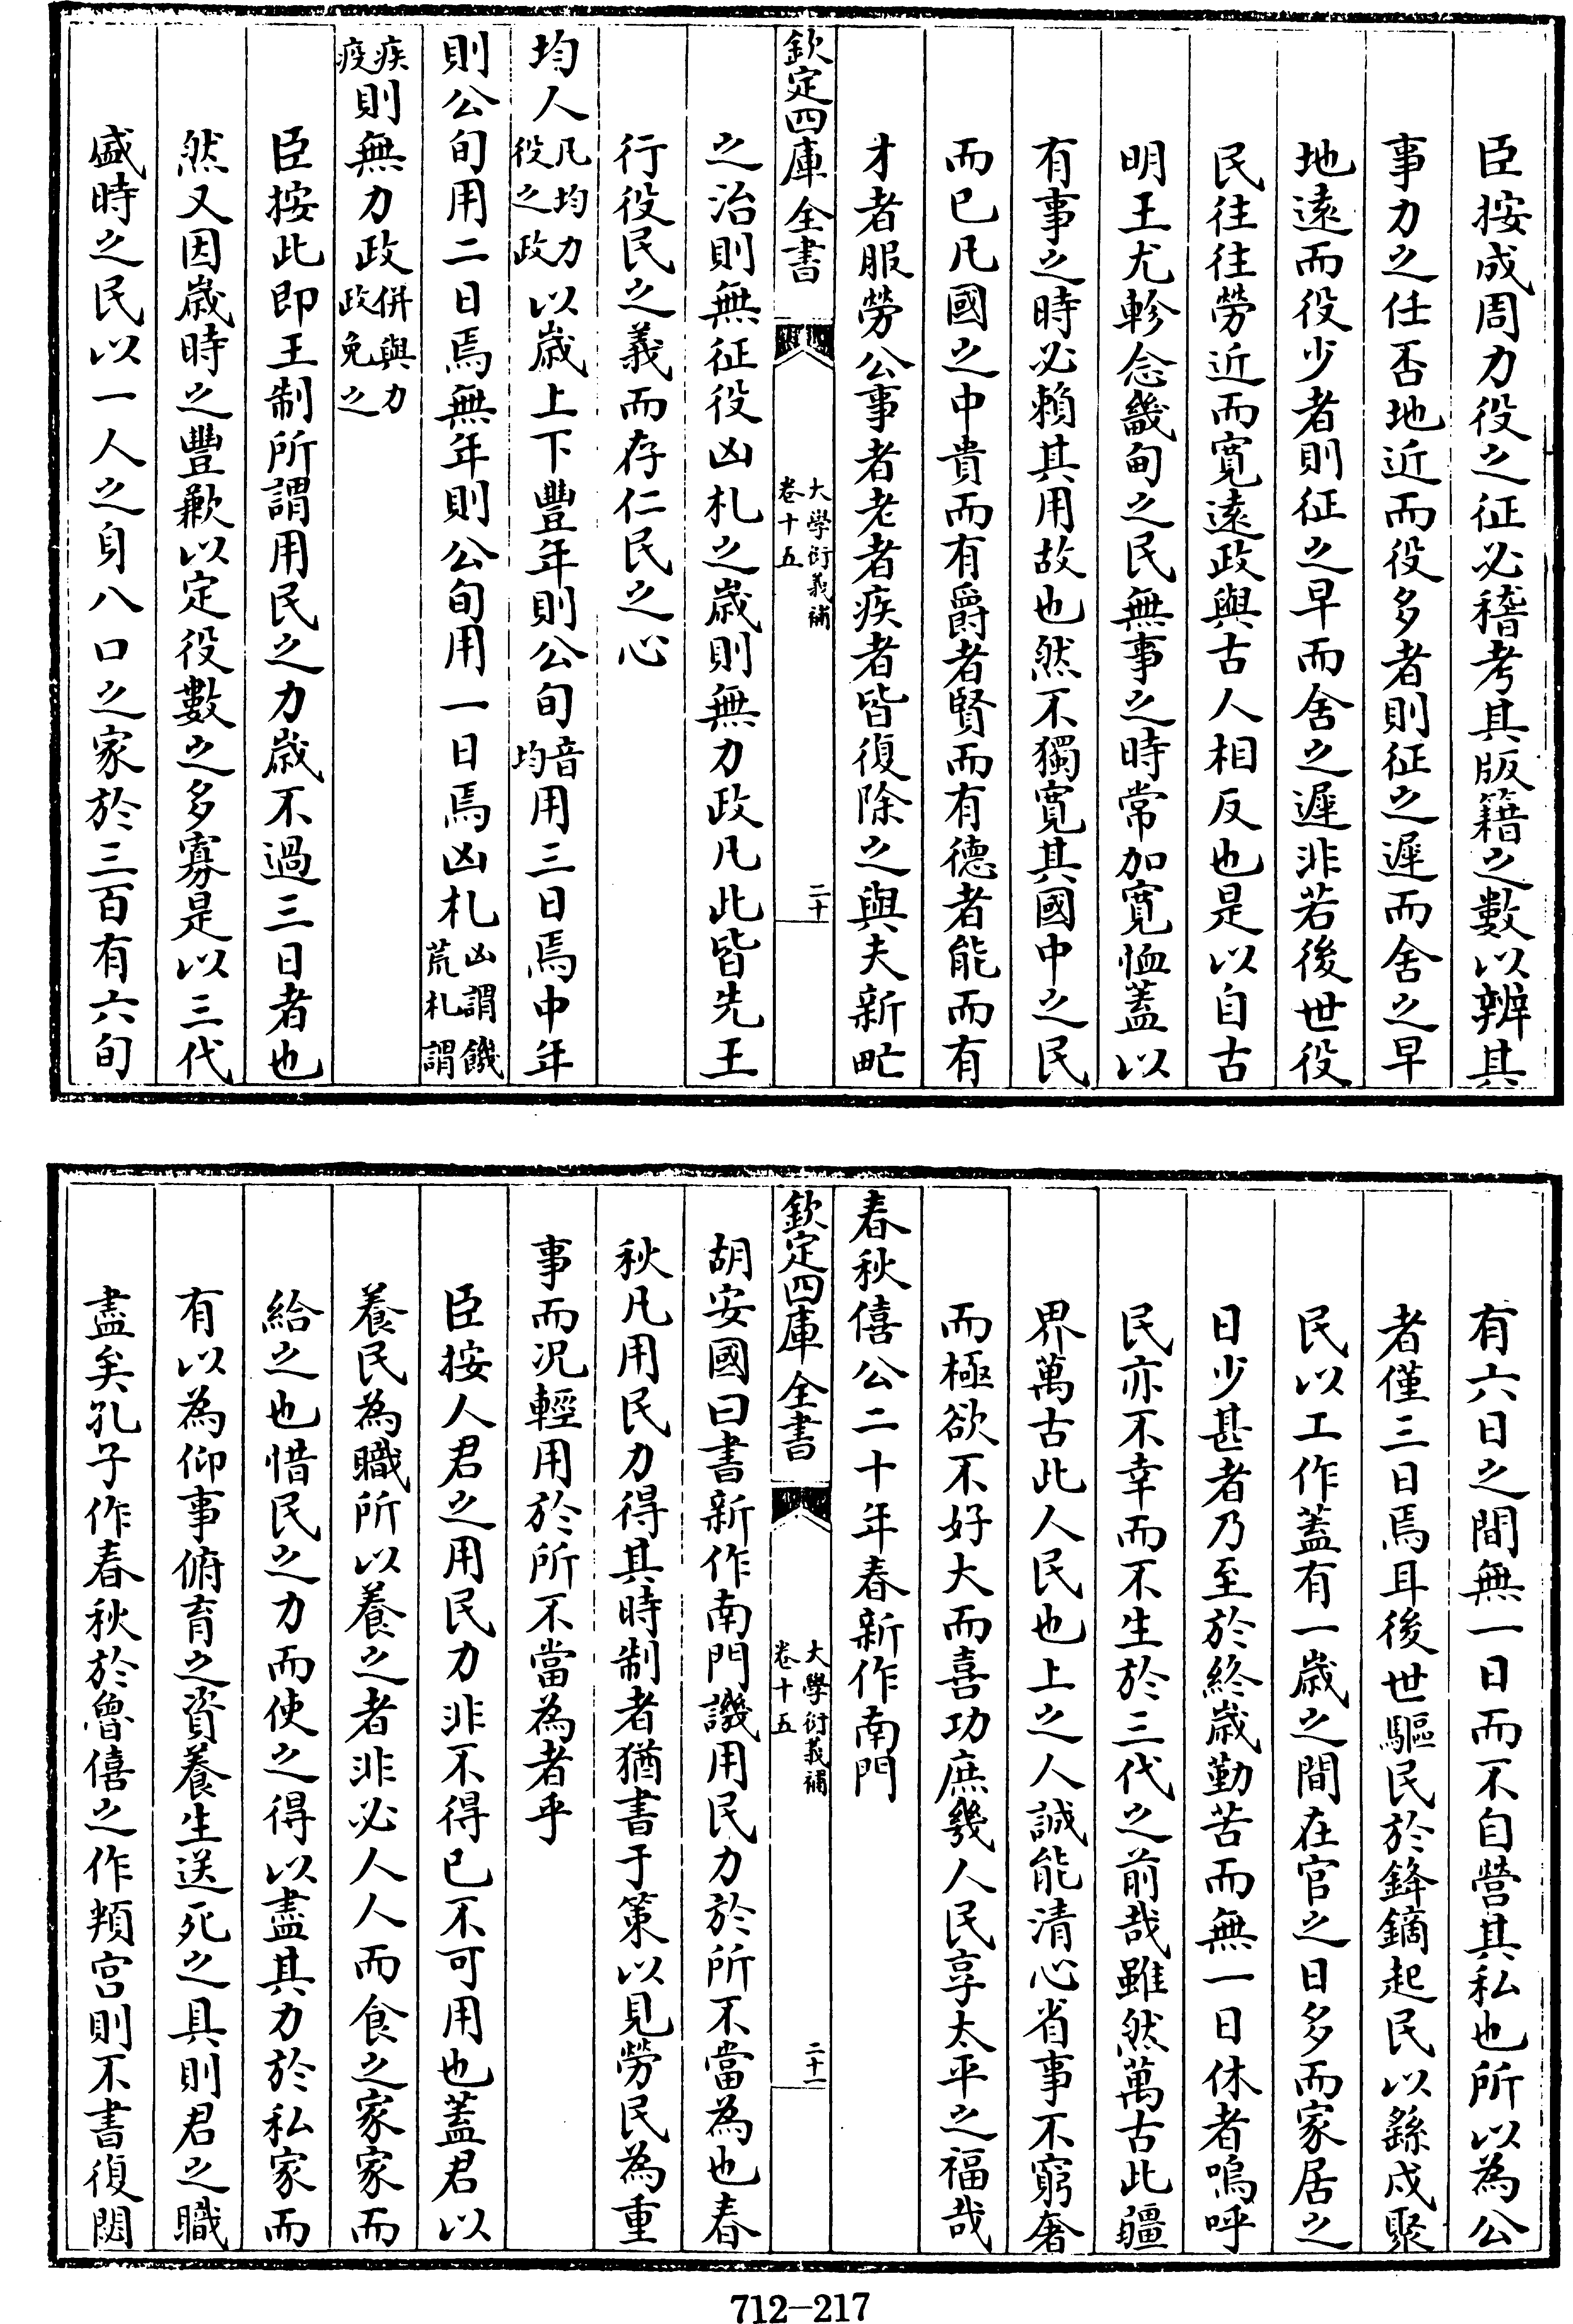 臣按成周力役之征必稽考其版籍之數以辨其
事力之任否地近而役多者則征之遲而舍之早
地遠而役少者則征之早而舍之遲非若後世役
民往往勞近而寛遠政與古人相反也是以自古
明王尤軫念畿甸之民無事之時常加寛恤蓋以
有事之時必賴其用故也然不獨寛其國中之民
而已凡國之中貴而有爵者賢而有德者能而有
才者服勞公事者老者疾者皆復除之與夫新甿
欽定四庫全書
大學衍義補
卷十五
二十
之治則無征役凶札之歲則無力政凡此皆先王
行役民之義而存仁民之心
均人凡均力役之政以歲上下豐年則公旬音均用三日焉中年
則公旬用二日焉無年則公旬用一日焉凶札凶謂饑荒札謂
疾疫則無力政併與力政免之
臣按此即王制所謂用民之力歲不過三日者也
然又因歲時之豐歉以定役數之多寡是以三代
盛時之民以一人之身八口之家於三百有六旬
有六日之間無一日而不自營其私也所以為公
者僅三日焉耳後世驅民於鋒鏑起民以繇戍聚
民以工作蓋有一歲之間在官之日多而家居之
日少甚者乃至於終歲勤苦而無一日休者嗚呼
民亦不幸而不生於三代之前哉雖然萬古此疆
界萬古此人民也上之人誠能清心省事不窮奢
而極欲不好大而喜功庶幾人民享太平之福哉
春秋僖公二十年春新作南門
欽定四庫全書
大學衍義補
卷十五
二十一
胡安國曰書新作南門譏用民力於所不當為也春
秋凡用民力得其時制者猶書于策以見勞民為重
事而况輕用於所不當為者乎
臣按人君之用民力非不得已不可用也蓋君以
養民為職所以養之者非必人人而食之家家而
給之也惜民之力而使之得以盡其力於私家而
有以為仰事俯育之資養生送死之具則君之職
盡矣孔子作春秋於魯僖之作頖宮則不書復閟
712-217